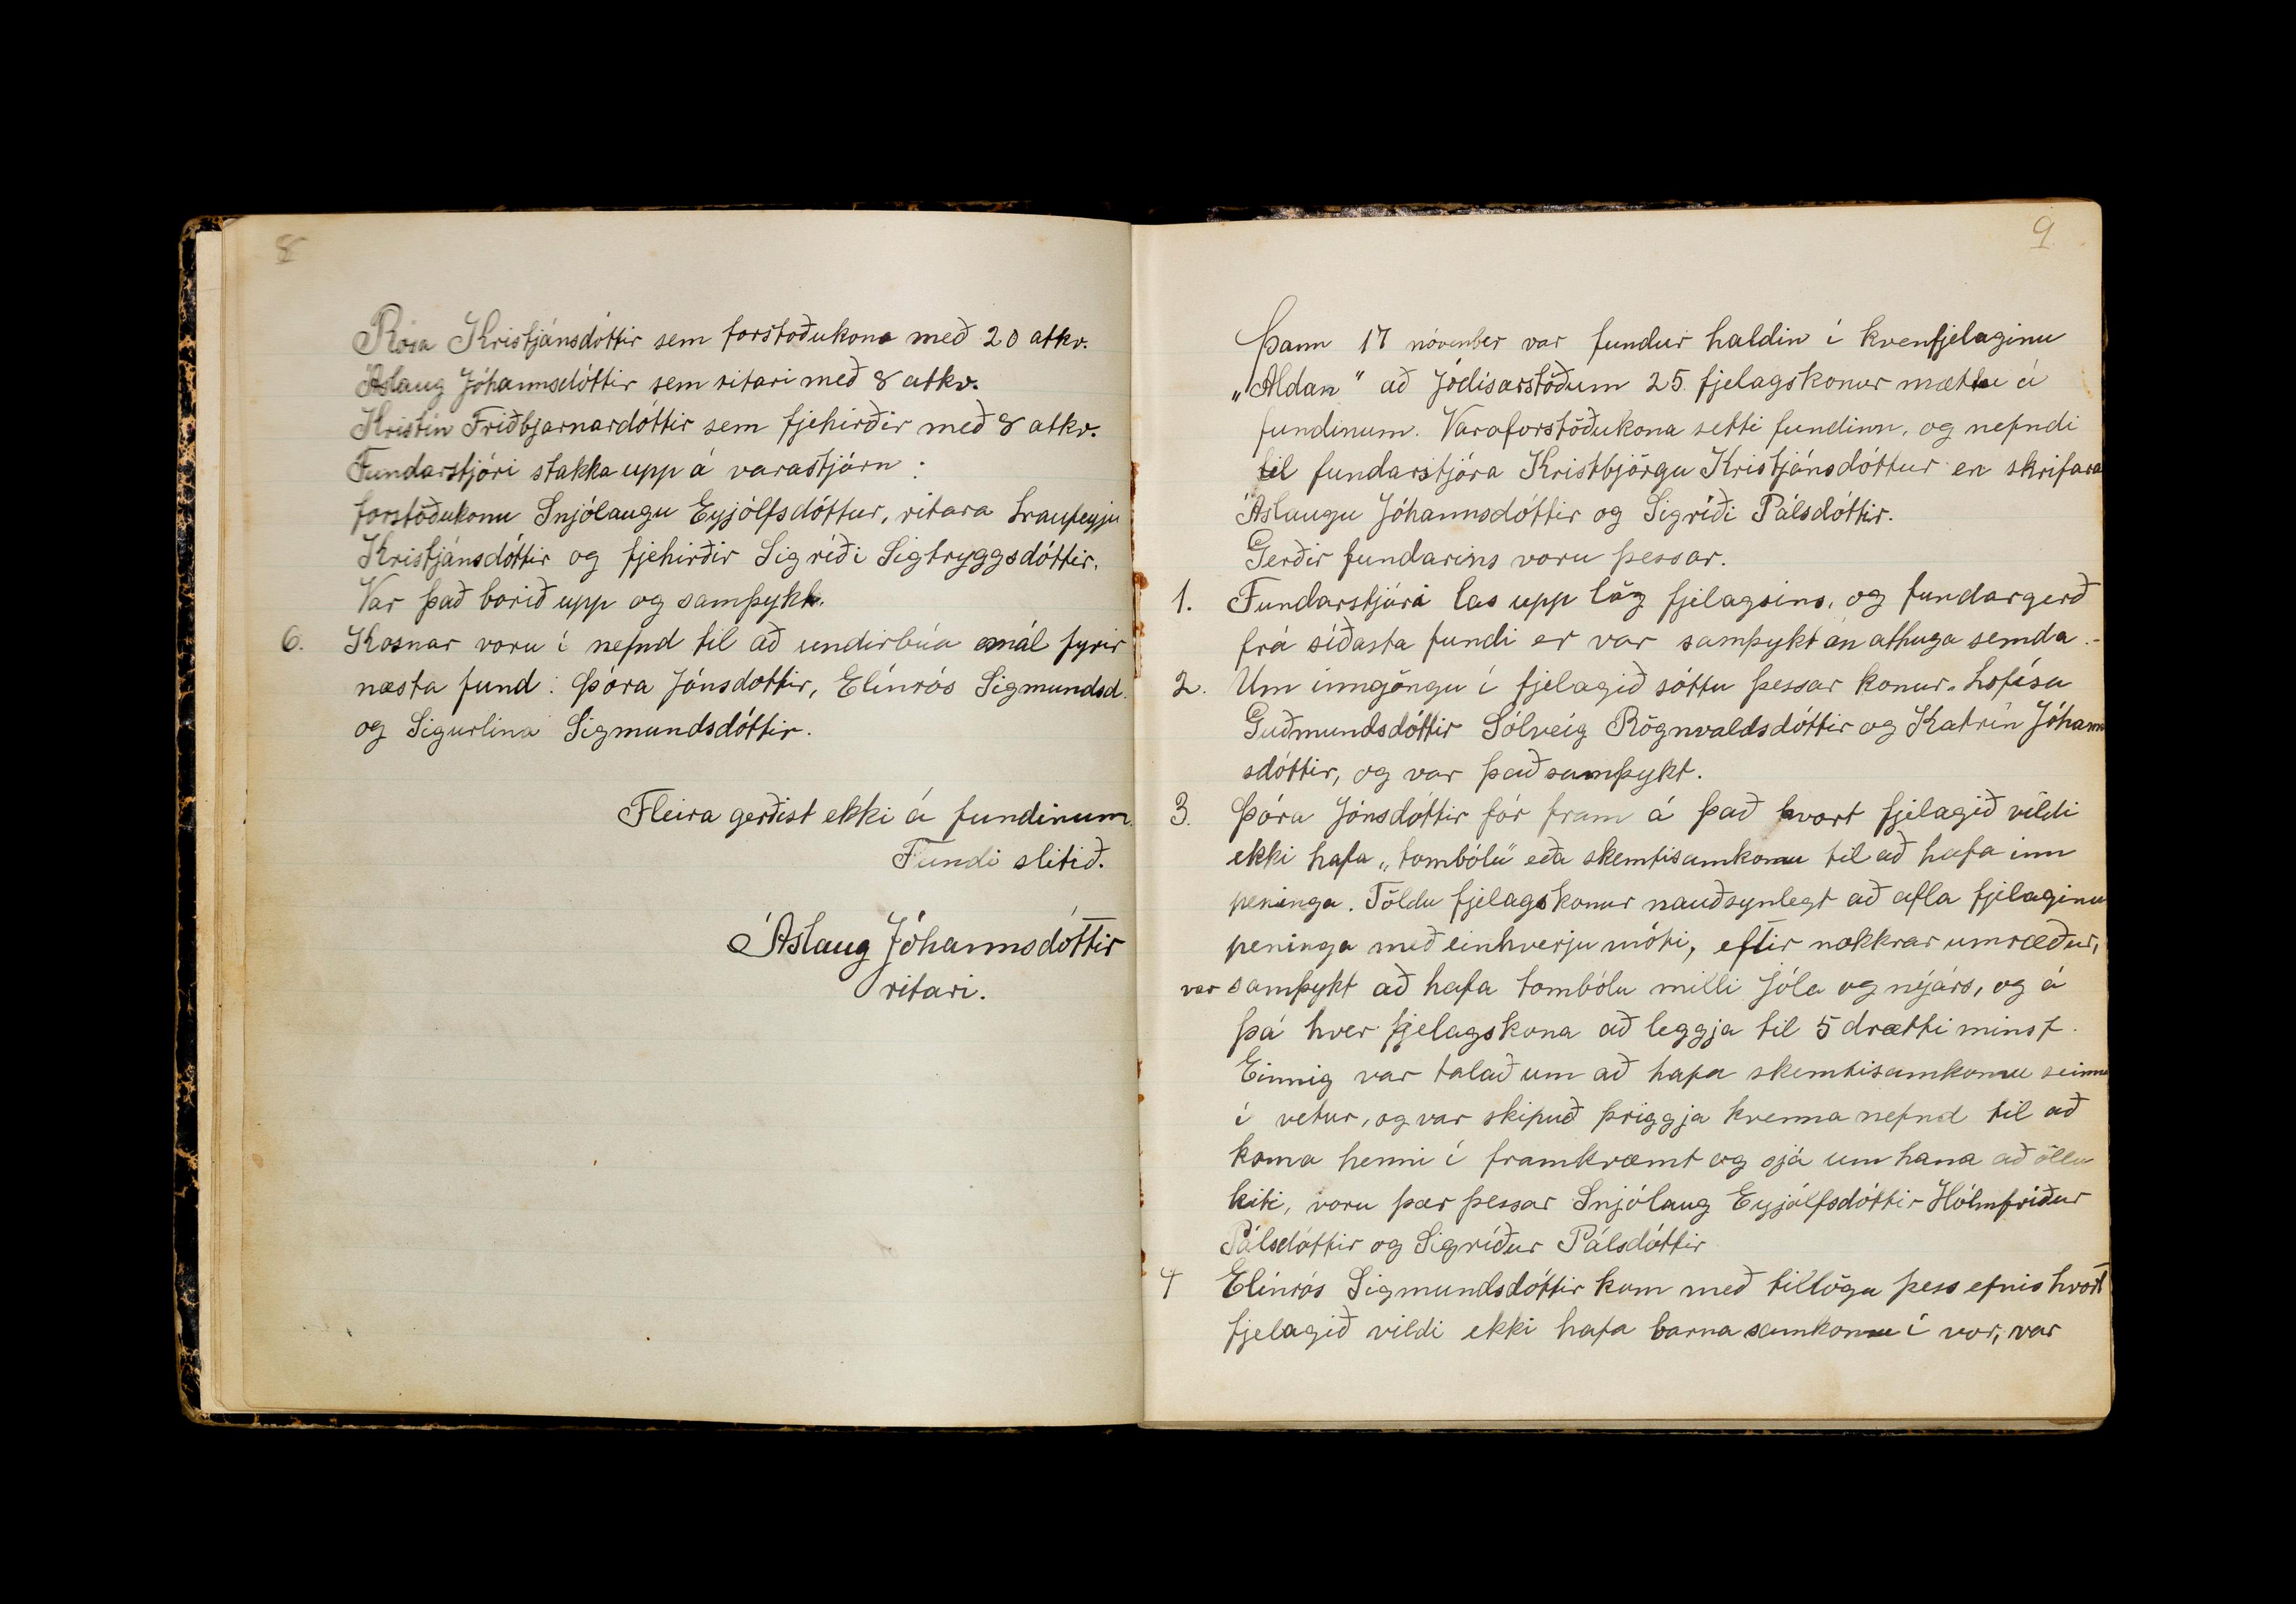 8
Rósa Kristjánsdóttir sem forstöðukona með 20 atkv.
Áslaug Jóhannsdóttir sem ritari með 8 atkv.
Kristín Friðbjarnardóttir sem fjehirðir með 8 atkv.
Fundarstjóri stakka upp á varastjórn :
forstöðukonu Snjólaugu Eyjólfsdóttur, ritara
Kristjánsdóttir og fjehirðir Sigríði Sigtryggsdóttir.
Var það borið upp og samþykt.
6. Kosnar voru í nefnd til að undirbúa mál fyrir
næsta fund : Þóra Jónsdóttir, Elínrós Sigmundsd.
og Sigurlina Sigmundsdóttir.
Fleira gerðist ekki á fundinum.
Fundi slitið.
Áslaug Jóhannsdóttir
ritari.
9
Þann 17 nóvember var fundur haldin í kvenfjelaginu
„Aldan" að Jódisarstöðum 25 fjelagskonur mættu á
fundinum. Varaforstöðukona setti fundinn, og nefndi
til fundarstjóra Kristbjörgu Kristjánsdóttur en skrifara
Áslaugu Jóhannsdóttir og Sigríði Pálsdóttir.
Gerðir fundarins voru þessar.
1. Fundarstjóri las upp lög fjelagsins, og fundargerð
frá síðasta fundi er var samþykt án athuga semda .-
2. Um inngöngu í fjelagið sóttu þessar konur.
Guðmundsdóttir Sólveig Rögnvaldsdóttir og Katrín Jóhann
sdóttir, og var það samþykt.
3. Þóra Jónsdóttir fór fram á það hvort fjelagið vildi
ekki hafa „tombólu" eða skemtisamkomu til að hafa inn
peninga. Töldu fjelagskonur nauðsynlegt að afla fjelaginu
peninga með einhverju móti, eftir nokkrar umræður,
var samþykt að hafa tombólu milli Jóla og nýjárs, og á
þá hver fjelagskona að leggja til 5 drætti minst.
Einnig var talað um að hafa skemtisamkomu seinna
í vetur, og var skipuð þriggja kvenna nefnd til að
koma henni í framkvæmt og sjá um hana að öllu
leiti, voru þær þessar Snjólaug Eyjólfsdóttir Hólmfríður
Pálsdóttir og Sigríður Pálsdóttir
4 Elínrós Sigmundsdóttir kom með tillögu þess efnis hvort
fjelagið vildi ekki hafa barna samkomu í vor, var